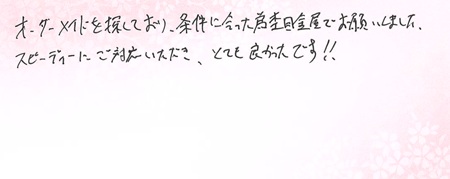 オーダーメイドを探しており、条件に合った為杢目金屋でお願いしました。
スピーディーにご対応いただき、とても良かったです!!